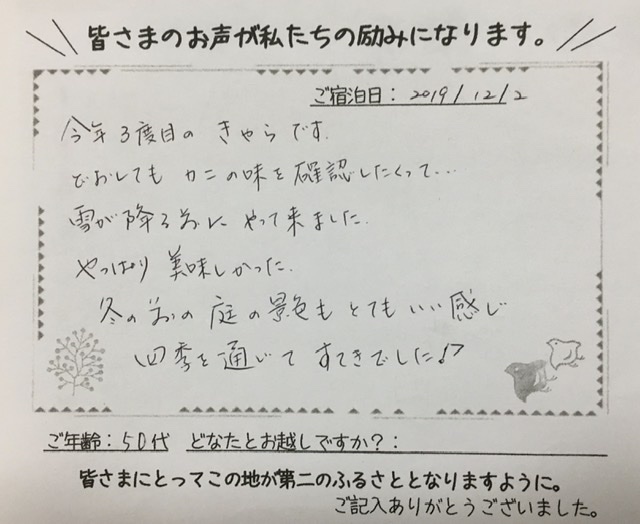 皆さまのお声が私たちの励みになります。
ご宿泊日：2019/12/2
今年3度目の きゃらです.
どおしても カニの味を確認したくって…
雪が降る前に やって来ました.
やっぱり 美味しかった.
冬の前の 庭の景色も とても いい感じ
四季を通じて すてきでした♪
ご年齢：50代 どなたとお越しですか？：
皆さまにとってこの地が第二のふるさととなりますように。
ご記入ありがとうございました。